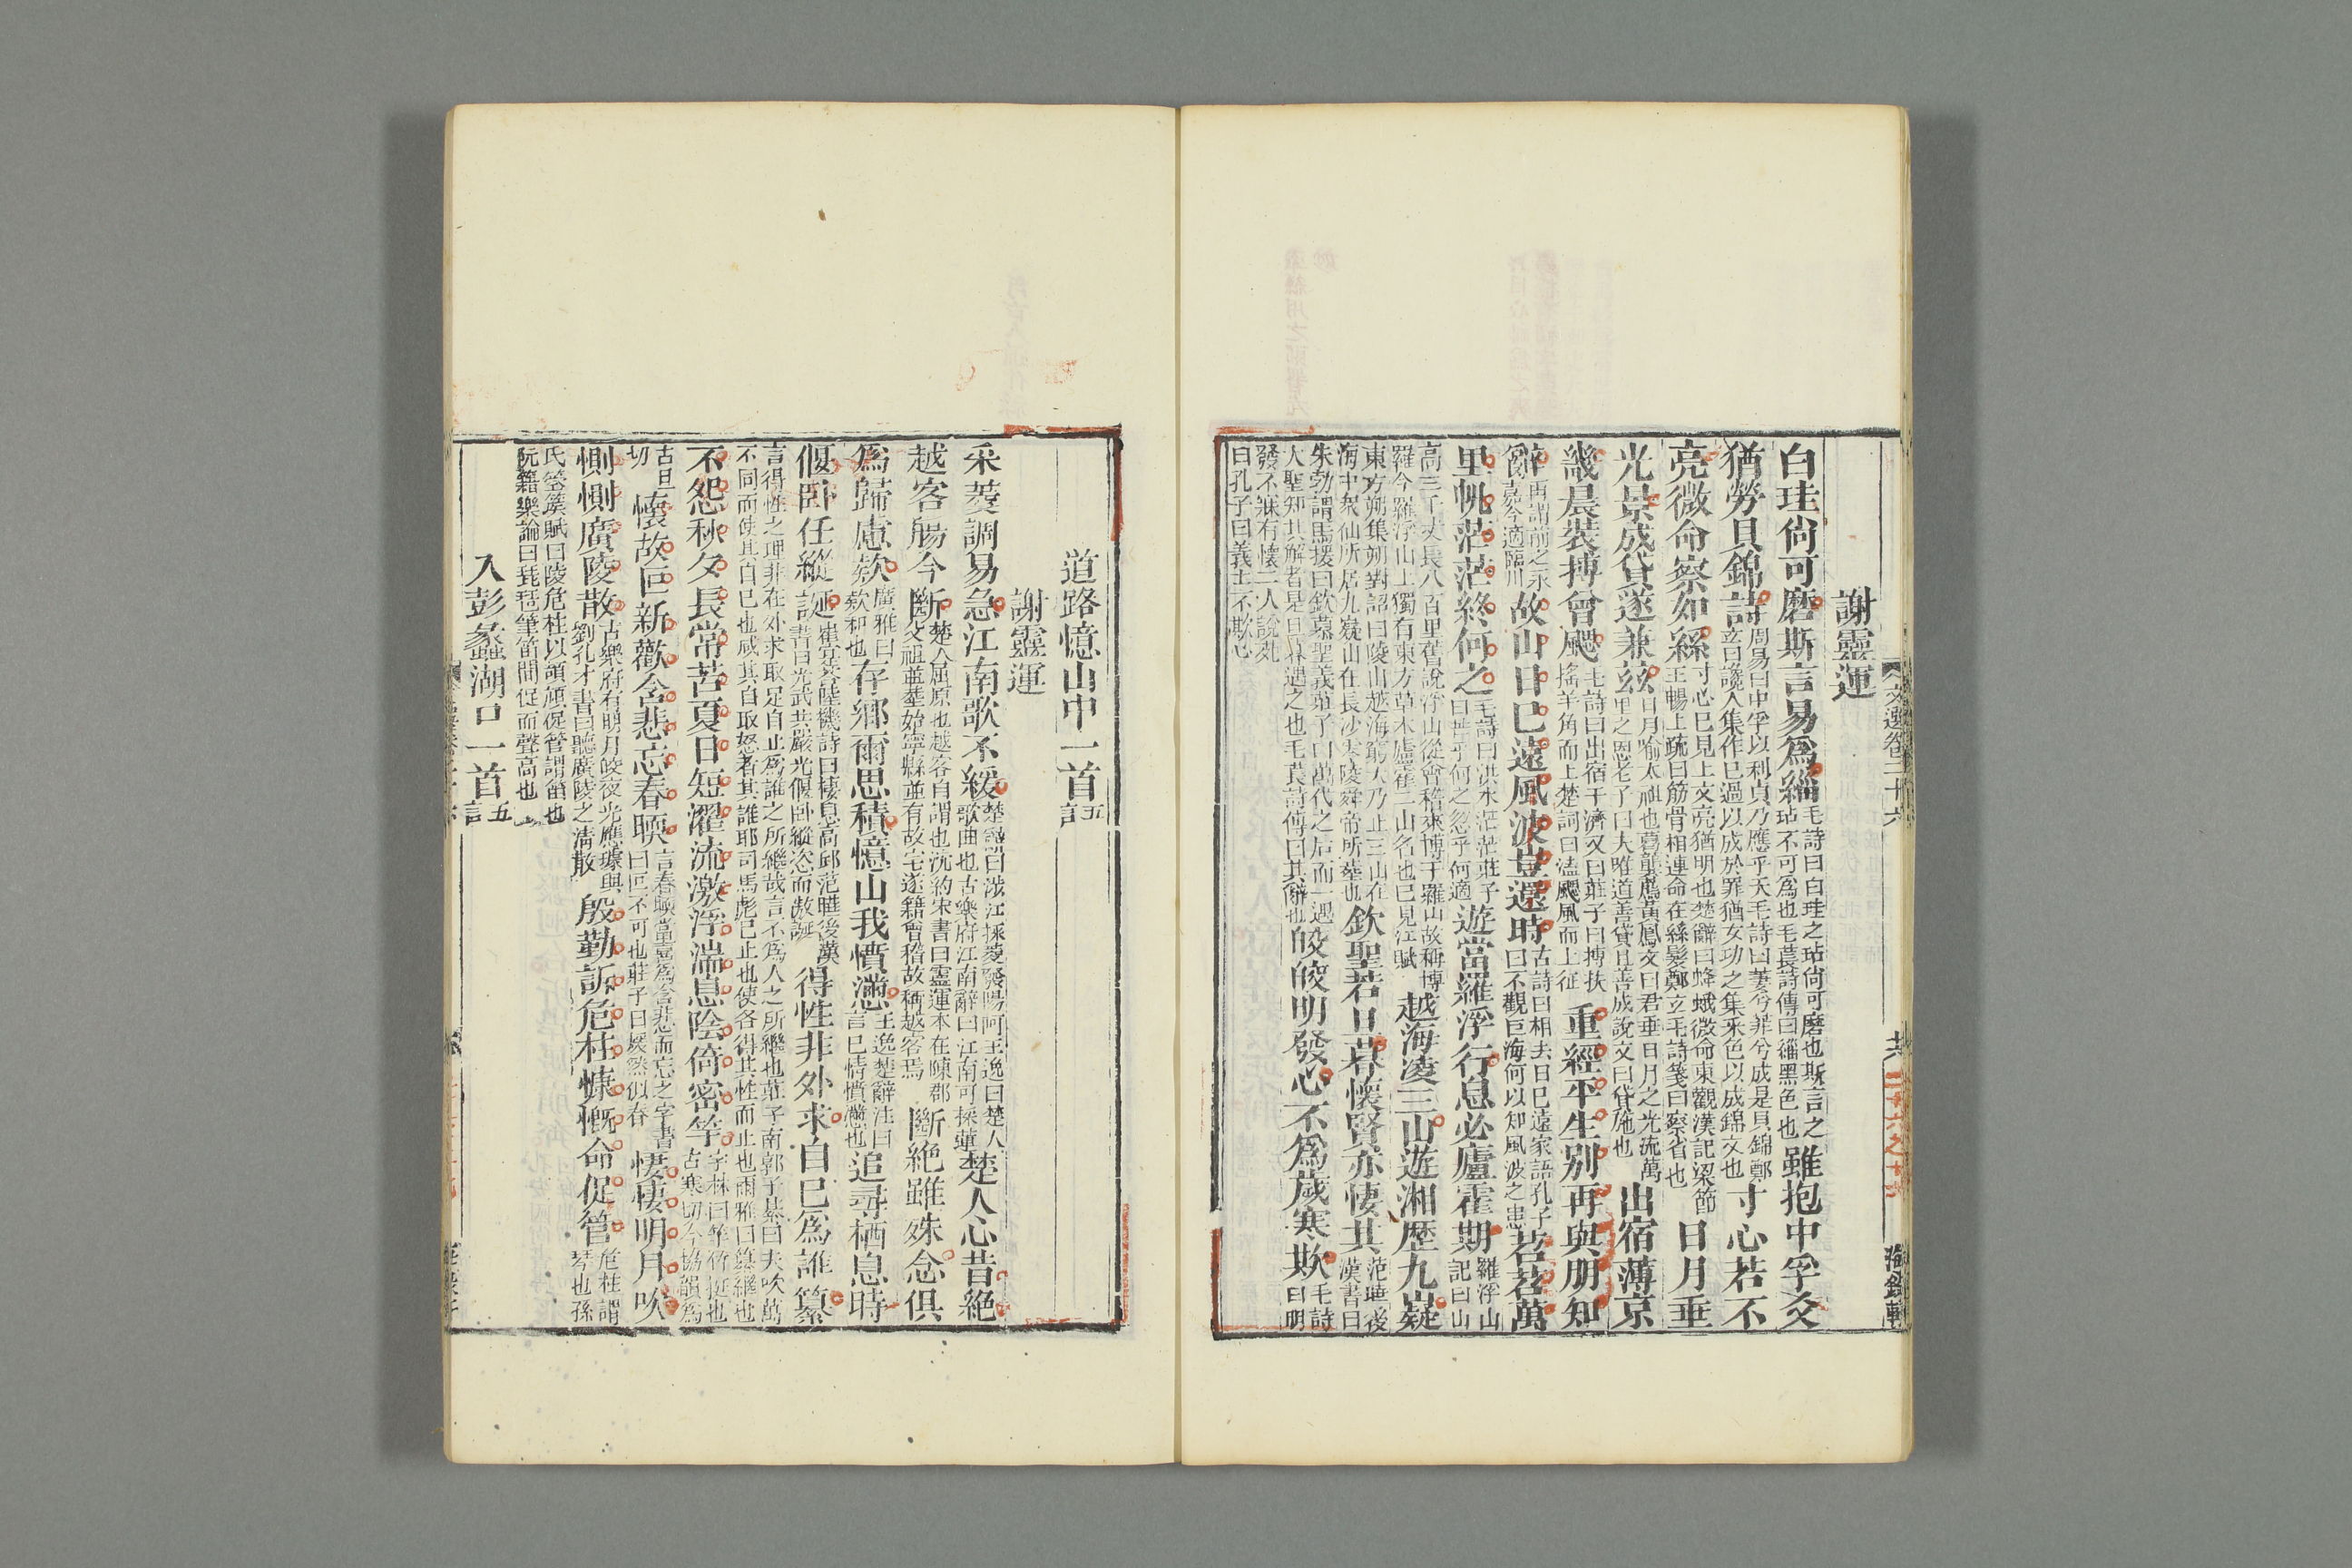 謝靈運
白珪尙可磨斯言易爲緇毛詩曰白珪之玷尙可磨也斯言之玷不可爲也毛萇詩傳曰緇黑色也雖抱中孚爻
猶勞貝錦詩周易曰中孚以利貞乃應乎天毛詩曰萋兮斐兮成是貝錦鄭玄曰讒人集作已過以成於罪猶女功之集采色以成錦文也寸心若不
亮微命察如絲寸心已見上文亮猶明也楚辭曰蜂蛾微命東觀漢記梁節王暢上疏曰筋骨相連命在絲髮鄭玄毛詩箋曰察省也日月垂
光景成貸遂兼茲日月喻太祖也葛龔薦黃鳳文曰君垂日月之光流萬里之恩老子曰大唯道善貸且善成說文曰貸施也出宿薄京
畿晨裝摶曾颸毛詩曰出宿于濟又曰莊子曰摶扶搖羊角而上楚詞曰溘颸風而上征重經平生別再與朋知
辭再謂前之永嘉今適臨川故山日已遠風波豈還時古詩曰相去日已遠家語孔子曰不觀巨海何以知風波之患苕苕萬
里帆茫茫終何之毛詩曰洪水茫茫莊子曰芒乎何之忽乎何適遊當羅浮行息必廬霍期羅浮山記曰山
高三千丈長八百里舊說浮山從會稽來博于羅山故稱博羅今羅浮山上獨有東方草木廬霍二山名也已見江賦越海凌三山遊湘歷九嶷
東方朔集朔對詔曰陵山越海窮天乃止三山在海中衆仙所居九嶷山在長沙零陵舜帝所葬也欽聖若旦暮懷賢亦悽其范曄後漢書曰
朱勃謂馬援曰欽慕聖義莊子曰萬代之后而一遇大聖知其解者是旦暮遇之也毛萇詩傳曰其辭也皎皎明發心不爲歲寒欺毛詩曰明
發不寐有懷二人說苑曰孔子曰義士不欺心
文選卷二十六
共
二十六之
海錄軒
道路憶山中一首五言
謝靈運
采菱調易急江南歌不緩楚辭曰涉江採菱發陽阿王逸曰楚人歌曲也古樂府江南辭曰江南可採蓮楚人心昔絕
越客腸今斷楚人屈原也越客自謂也沈約宋書曰靈運本在陳郡父祖並葬始寧縣並有故宅遂籍會稽故稱越客焉斷絕雖殊念俱
爲歸慮欵廣雅曰欵叩也存鄉爾思積憶山我憤懣王逸楚辭注曰言己情憤懣也追尋栖息時
偃臥任縱誕崔寔答陸機詩曰棲息高邱范曄後漢書曰光武共嚴光偃臥縱恣而敖誕得性非外求自已爲誰纂
言得性之理非在外求取足自止爲誰之所繼哉言不爲人之所繼也莊子南郭子綦曰夫吹萬不同而使其自已也咸其自取怒者其誰耶司馬彪已止也使各得其性而止也爾雅曰纂繼也
不怨秋夕長常苦夏日短濯流激浮湍息陰倚密竿字林曰竿竹挺也古寒切今協韻爲
古旦切懷故叵新歡含悲忘春暝言春暝當喜爲含悲而忘之字書曰叵不可也莊子曰煖然似春悽悽明月吹
惻惻廣陵散古樂府有明月皎夜光應璩與劉孔才書曰聽廣陵之清散殷勤訴危柱慷慨命促管危柱謂琴也孫
氏箜篌賦曰陵危柱以頡頏促管謂笛也阮籍樂論曰琵琶箏笛間促而聲高也
入彭蠡湖口一首五言